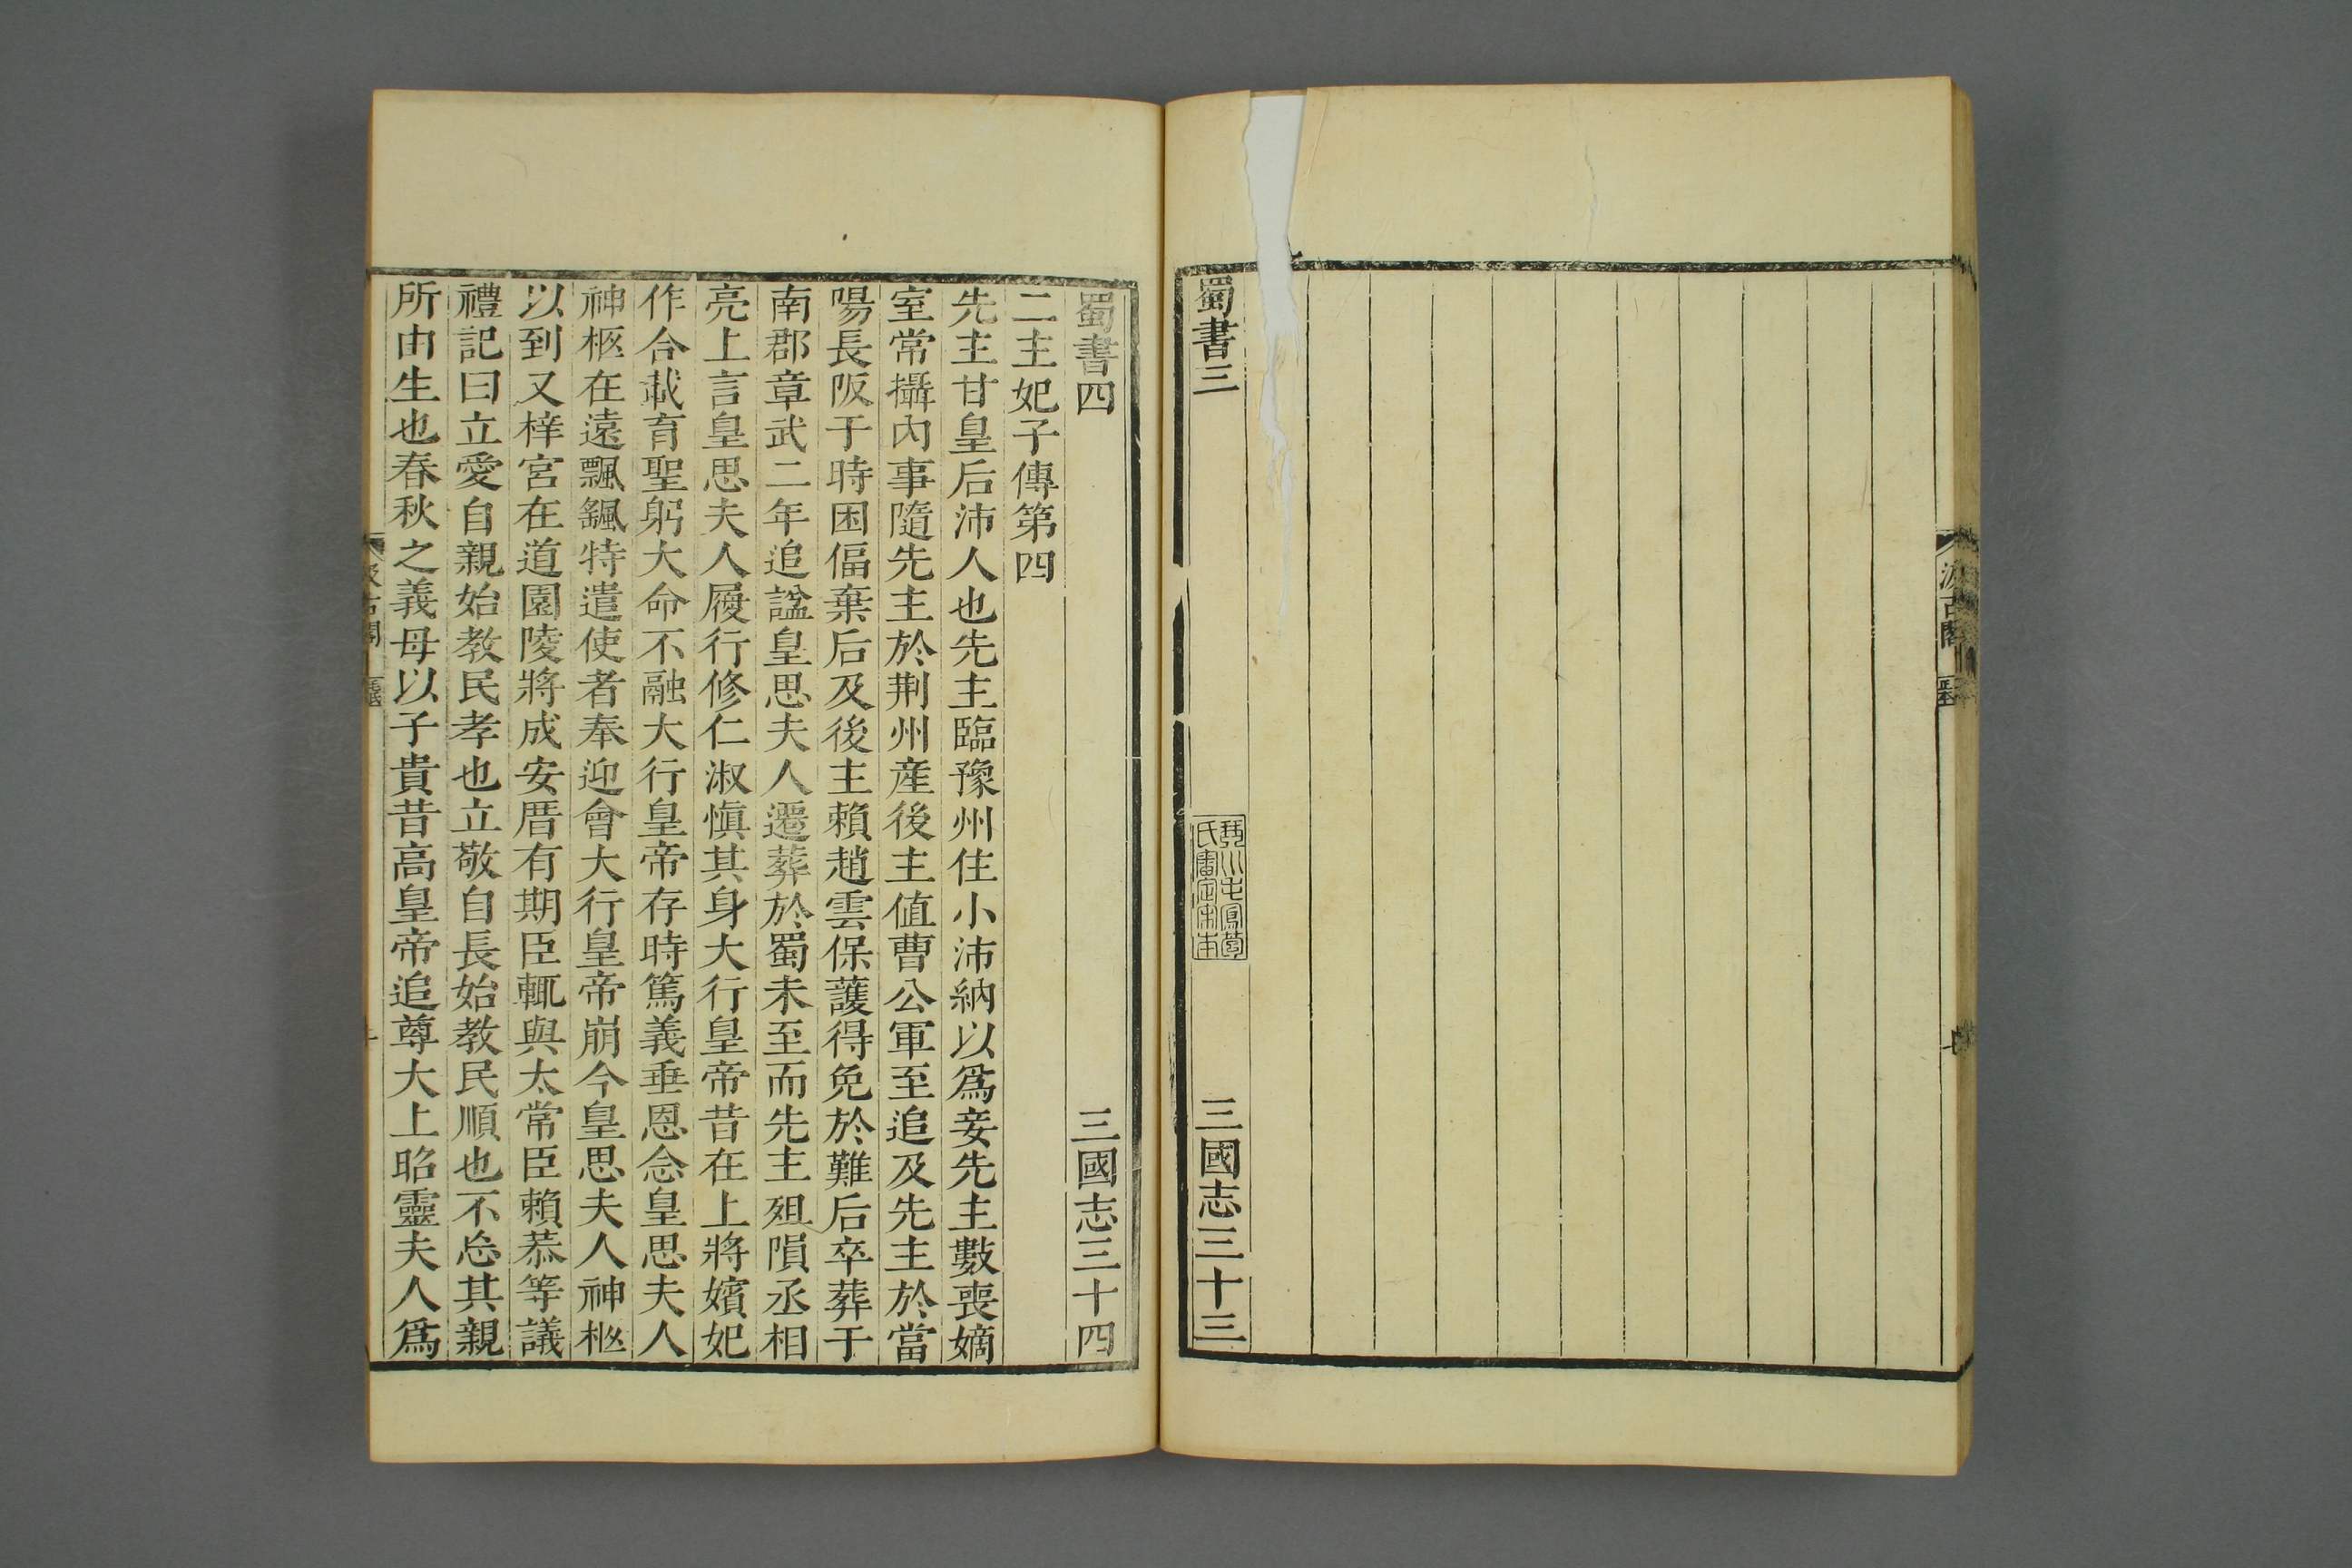 蜀書三 三國志三十三
蜀書四 三國志三十四
二主妃子傳第四
先主甘皇后沛人也先主臨豫州住小沛納以爲妾先主數喪嫡
室常攝內事隨先主於荆州産後主值曹公軍至追及先主於當
陽長阪于時困偪棄后及後主賴趙雲保護得免於難后卒葬于
南郡章武二年追諡皇思夫人遷葬於蜀未至而先主殂隕丞相
亮上言皇思夫人履行修仁淑愼其身大行皇帝昔在上將嬪妃
作合載育聖躬大命不融大行皇帝存時篤義垂恩念皇思夫人
神柩在遠飄颻特遣使者奉迎會大行皇帝崩今皇思夫人神柩
以到又梓宮在道園陵將成安厝有期臣輒與太常臣賴恭等議
禮記曰立愛自親始教民孝也立敬自長始教民順也不忘其親
所由生也春秋之義母以子貴昔高皇帝追尊大上昭靈夫人爲